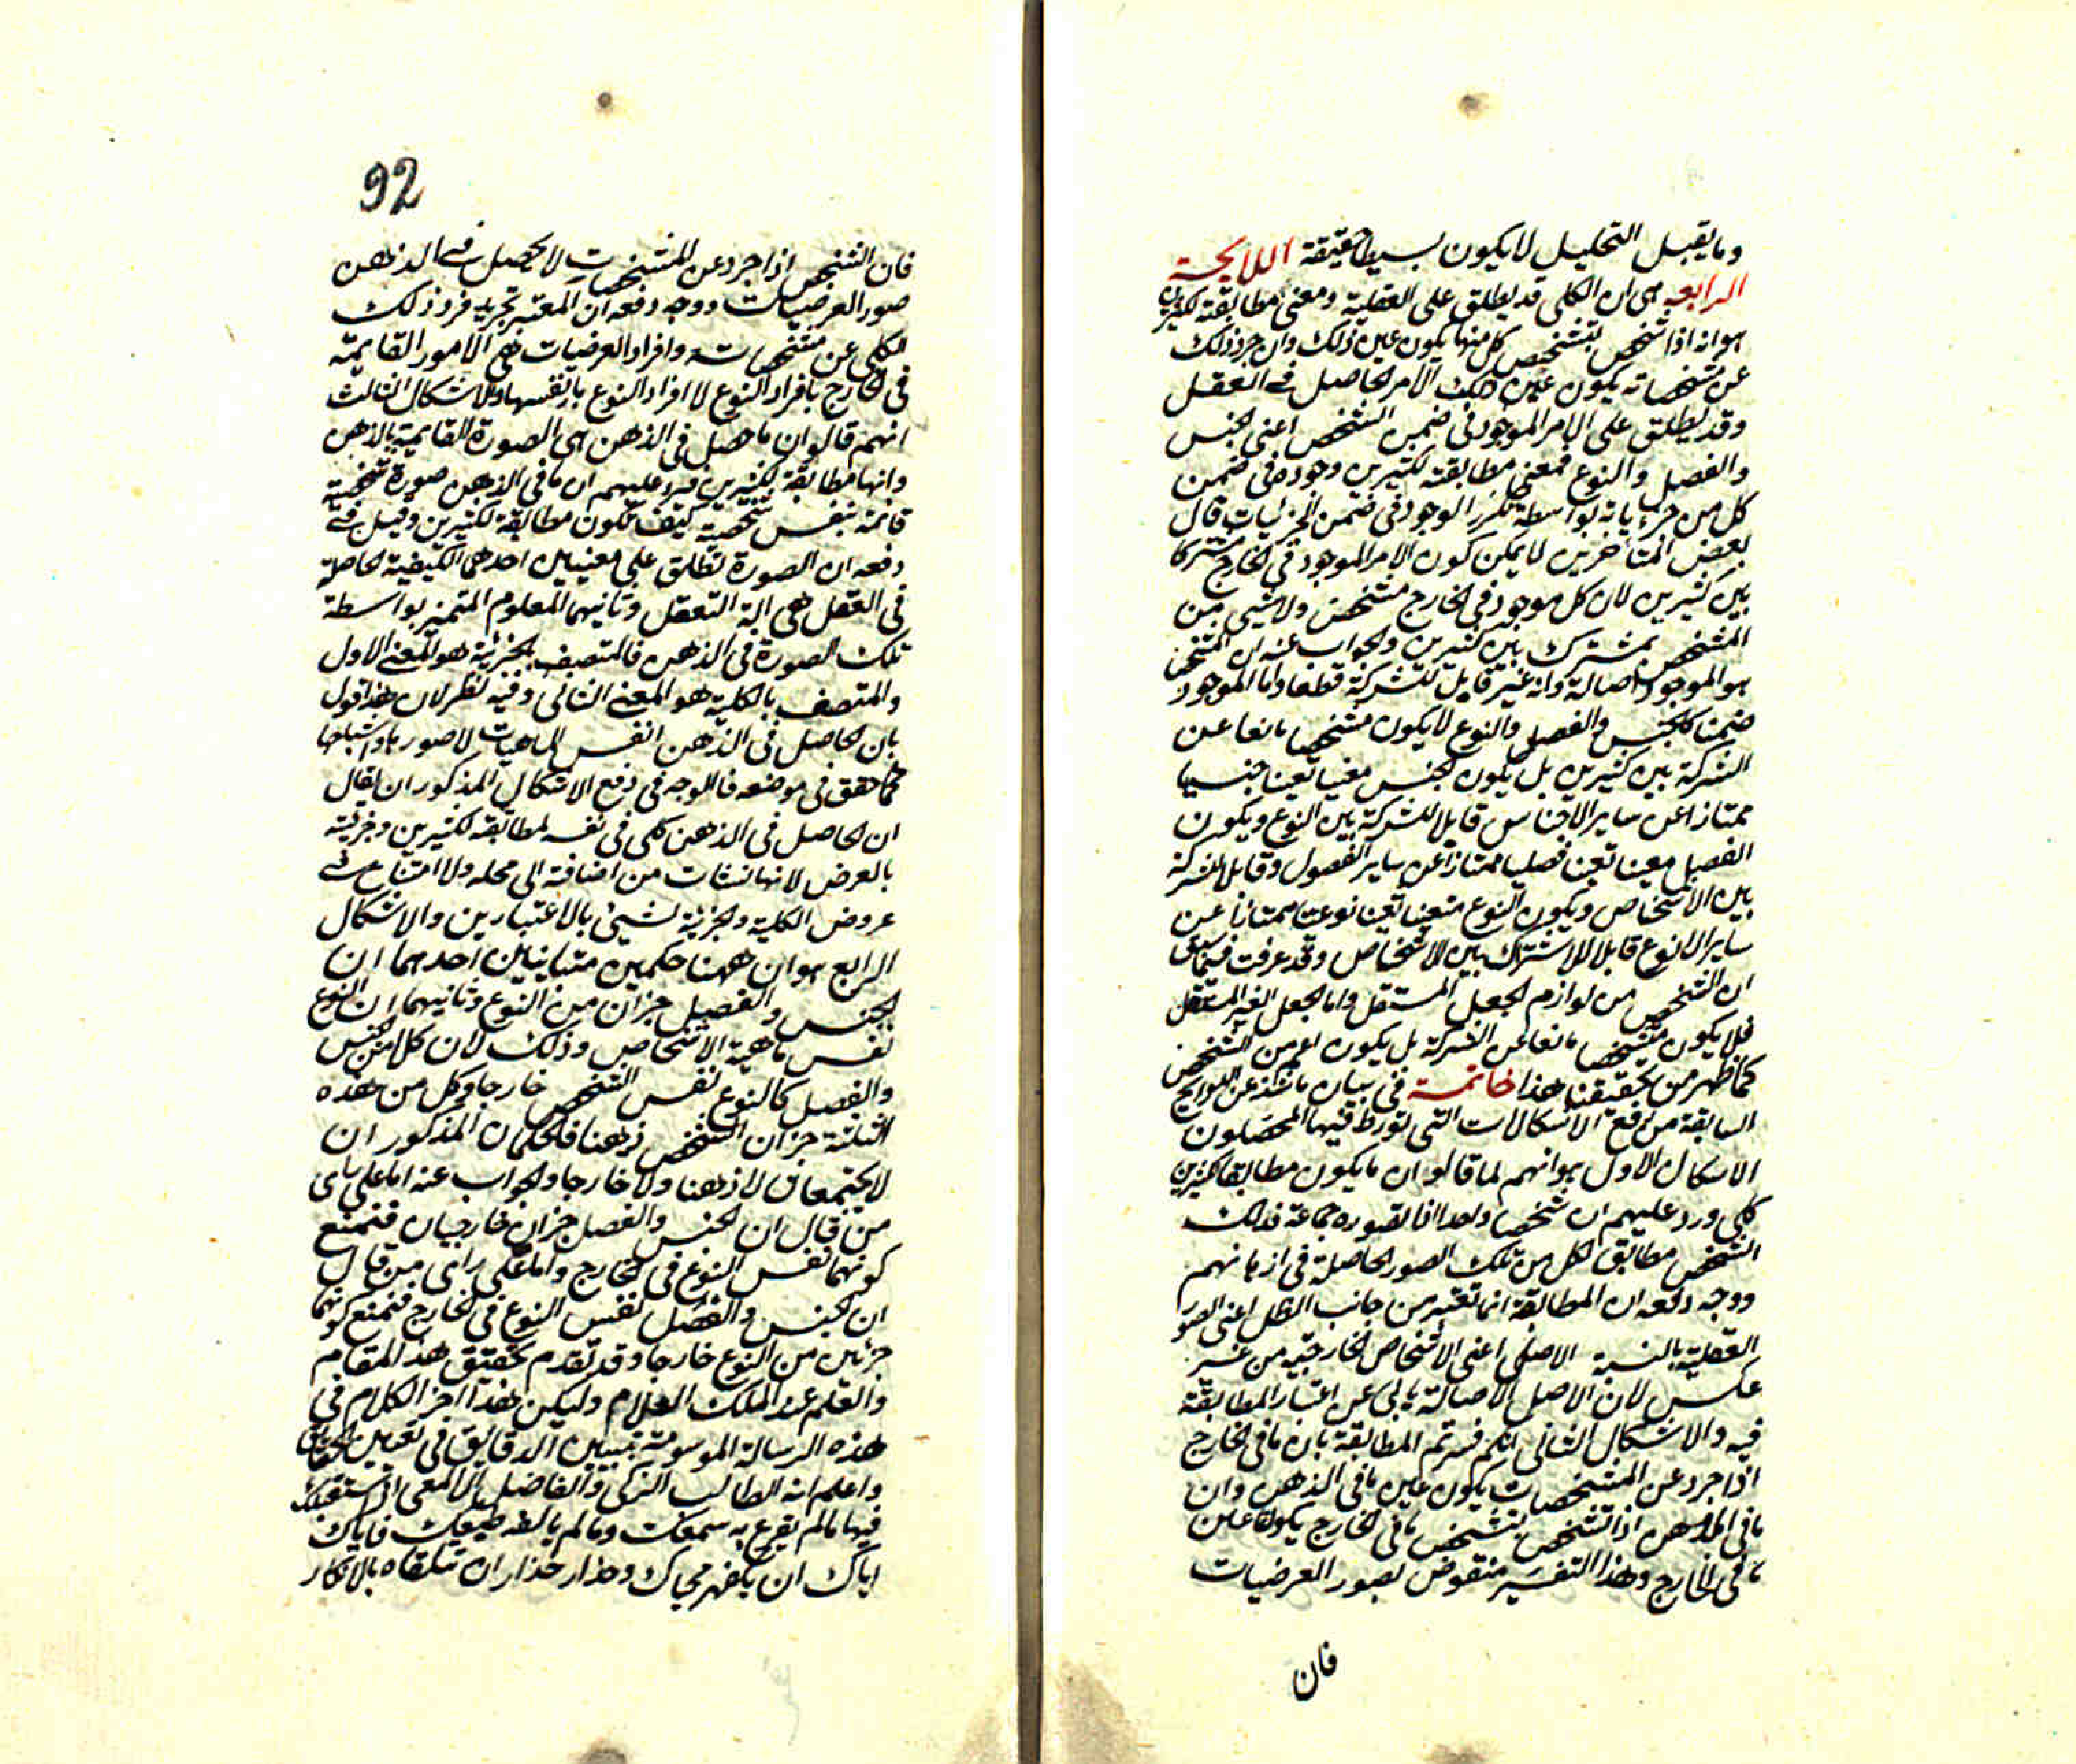 وما يقبل التحليل لا يكون بسيطا حقيقة اللايحة
الرابعة هى ان الكلى قد يطلق على العقلية ومعنى مطابقته لكثيرين
هو انه اذا تشخص بتشخص كل منها يكون عين ذلك وان جرد ذلك
عن مشخصاته يكون عين ذلك الامر الحاصل فى العقل
وقد يطلق على الامر الموجود فى ضمن الشخص اعنى الجنس
والفصل والنوع فمعنى مطابقته لكثيرين وجوده فى ضمن
كل من جزياته بواسطة تكرر الوجود فى ضمن الجزئيات قال
بعض المتأخرين لا يمكن كون الامر الموجود فى الخارج مشتركا
بين كثيرين لان كل موجود فى الخارج مشخص ولا شىء من
المشخص بمشترك بين كثيرين والجواب عنه ان المشخص
هو الموجود اصالة وانه غير قابل للشركة قطعا واما الموجود
ضمنا كالجنس والفصل والنوع لا يكون مشخصا مانعا عن
الشركة بين كثيرين بل يكون الجنس معينا تعينا جنسيا
ممتازا عن ساير الاجناس قابلا للشركة بين النوع ويكون
الفصل معينا تعينا فصليا ممتازا عن ساير الفصول وقابلا للشركة
بين الاشخاص ويكون النوع متعينا تعينا نوعيا ممتازا عن
ساير الانوع قابلا للاشتراك بين الاشخاص وقد عرفت فيما سبق
ان التشخص من لوازم الجعل المستقل واما الجعل الغير المستقل
فلا يكون مشخصا مانعا عن الشركة بل يكون اعم من الشخص
كما ظهر من تحقيقنا هذا خاتمة فى بيان ما شذ عن اللوايح
السابقة من رفع الاشكالات التى تورط فيها المحصلون
الاشكال الاول هو انهم لما قالوا ان ما يكون مطابقا لكثيرين
كلى ورد عليهم ان شخصا واحدا اذا تصوره جماعة فذلك
الشخص مطابق لكل من تلك الصور الحاصلة فى اذهانهم
ووجه دفعه ان المطابقة انما تعتبر من جانب الظل اعنى الصور
العقلية بالنسبة الاصلى اعنى الاشخاص الخارجية من غير
عكس لان الاصل الاصالة يابى عن اعتبار المطابقة
فيه والاشكال الثانى انكم فسرتم المطابقة بان ما فى الخارج
اذا جرد عن المشخصات يكون عين ما فى الذهن وان
ما فى الذهن اذا تشخص بتشخص ما فى الخارج يكون عين
ما فى الخارج وهذا التفسير منقوض بصور العرضيات
فان
92
فان الشخص اذا جرد عن المشخصات لا يحصل فى الذهن
صور العرضيات ووجه دفعه ان المعتبر تجريد فرد ذلك
الكلى عن مشخصاته وافراد العرضيات هى الامور القايمة
فى الخارج بافراد النوع لا افراد النوع بانفسها والاشكال الثالث
انهم قالوا ان ما حصل فى الذهن هى الصورة القايمة بالذهن
وانها مطابقة لكثيرين فيرد عليهم ان ما فى الذهن صورة شخصية
قائمة بنفس شخصية كيف تكون مطابقة لكثيرين وقيل فى
دفعه ان الصورة تطلق على معنيين احدهما الكيفية الحاصلة
فى العقل هى الة التعقل وثانيهما المعلوم المتميز بواسطة
تلك الصورة فى الذهن فالمتصف بالجزئية هو المعنى الاول
والمتصف بالكلية هو المعنى الثانى وفيه نظر لان هذا قول
بان الحاصل فى الذهن انفس الماهيات لا صورها واشباحها
كما حقق فى موضعه فالوجه فى دفع الاشكال المذكور ان يقال
ان الحاصل فى الذهن كلى فى نفسه لمطابقته لكثيرين وجزئيته
بالعرض لانها نشات من اضافته الى محله ولا امتناع فى
عروض الكلية والجزئية لشىء بالاعتبارين والاشكال
الرابع هو ان ههنا حكمين متباينين احدهما ان
الجنس والفصل جزان من النوع وثانيهما ان النوع
نفس ماهية الاشخاص وذلك لان كلا من الجنس
والفصل كالنوع نفس الشخص خارجا وكل من هذه
الثلثة جزان الشخص ذهنا فالحكمان المذكوران
لا يجتمعان لا ذهنا ولا خارجا والجواب عنه اما على راى
من قال ان الجنس والفصل جزان خارجيان فنمنع
كونهما نفس النوع فى الخارج واما على راى من قال
ان الجنس والفصل نفس النوع فى الخارج فنمنع كونهما
جزئين من النوع خارجا وقد تقدم تحقيق هذا المقام
والعلم عند الملك العلام وليكن هذا اخر الكلام فى
هذه الرسالة الموسومة بتبيين الدقايق فى تعيين الحقايق
واعلم انه الطالب الزكى والفاضل الالمعى اذا استقبلك
فيها ما لم يقرع به سمعك وما لم يالفه طبعك فاياك
اياك ان يكفهر محياك وحذار حذار ان تتلقاه بالانكار